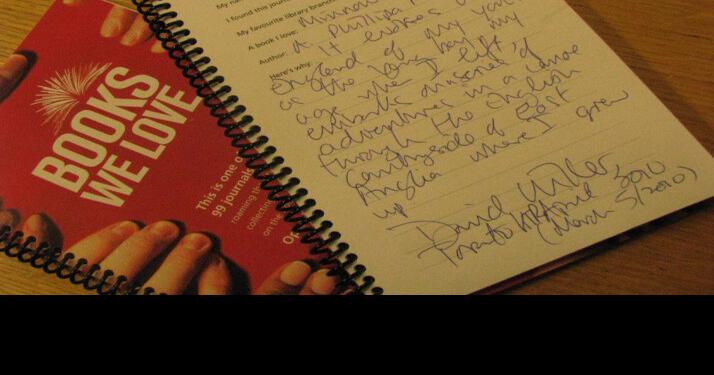 BOOKS
WE LOVE
This is one o
99 journals
roaming th
collecti
on the
O
My na
I found this journ
My favourite library branch
A book I love: Minnow
Author: A. Philippa P
Here's why: it evokes
England of my you
as the long
age when I left,
adventures in a canoe
through the English
Countryside of East
Anglia where I grew
up
David Miller
Toronto April 2010
(March 5/2010)